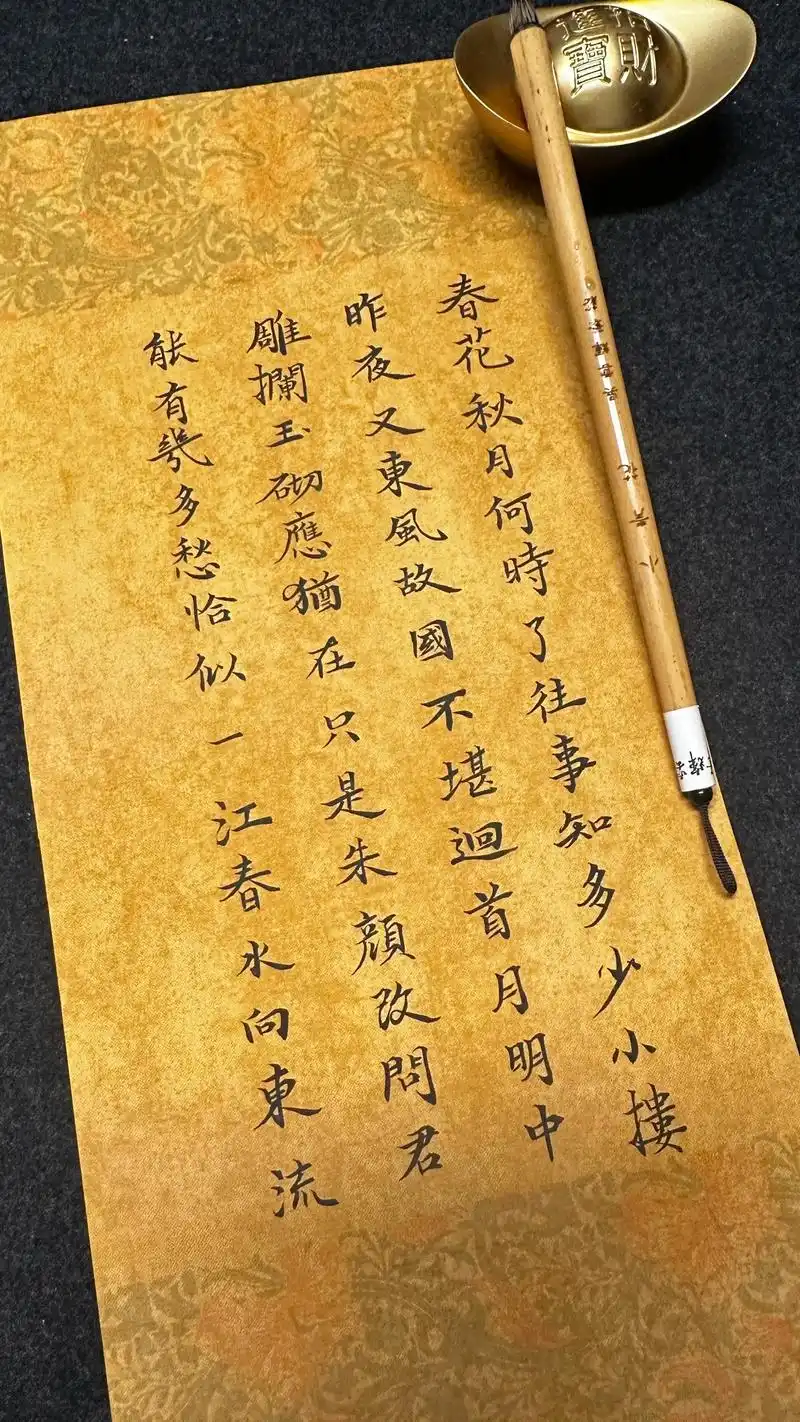 春花秋月何時了往事知多少小摟
昨夜又東風故國不堪迴首月明中
雕攔玉砌應猶在只是朱顔改問君
能有幾多愁恰似一江春水向東流
招財
進寶